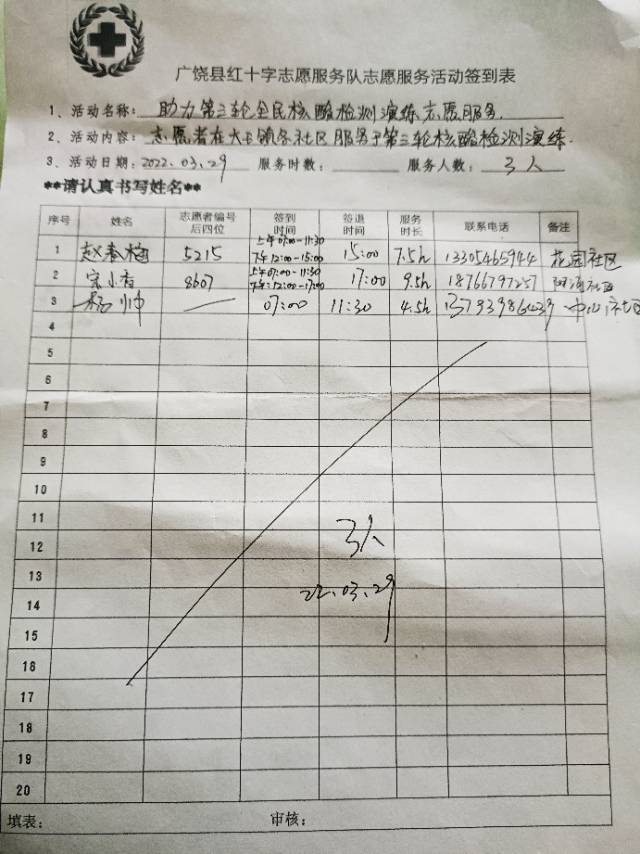 广饶县红十字志愿服务队志愿服务活动签到表
1、活动名称：助力第三轮全民核酸检测演练志愿服务.
2、活动内容：志愿者在大王镇各社区服务于第三轮核酸检测演练.
3、活动日期：2022.03.29 服务时数： 服务人数：3人
**请认真书写姓名**
序号 姓名 志愿者编号后四位 签到时间 签退时间 服务时长 联系电话 备注
1 赵春梅 5215 上午07:00-11:30 下午12:00-15:00 15:00 7.5h 13305465944 花园社区
2 宋小香 8607 上午07:00-11:30 下午:12:00-17:00 17:00 9.5h 18766797257 社区
3 杨帅 — 07:00 11:30 4.5h 中心社区
4
5
6
7
8
9
10
11
12 3人
13
14 22.03.29
15
16
17
18
19
20
填表： 审核：